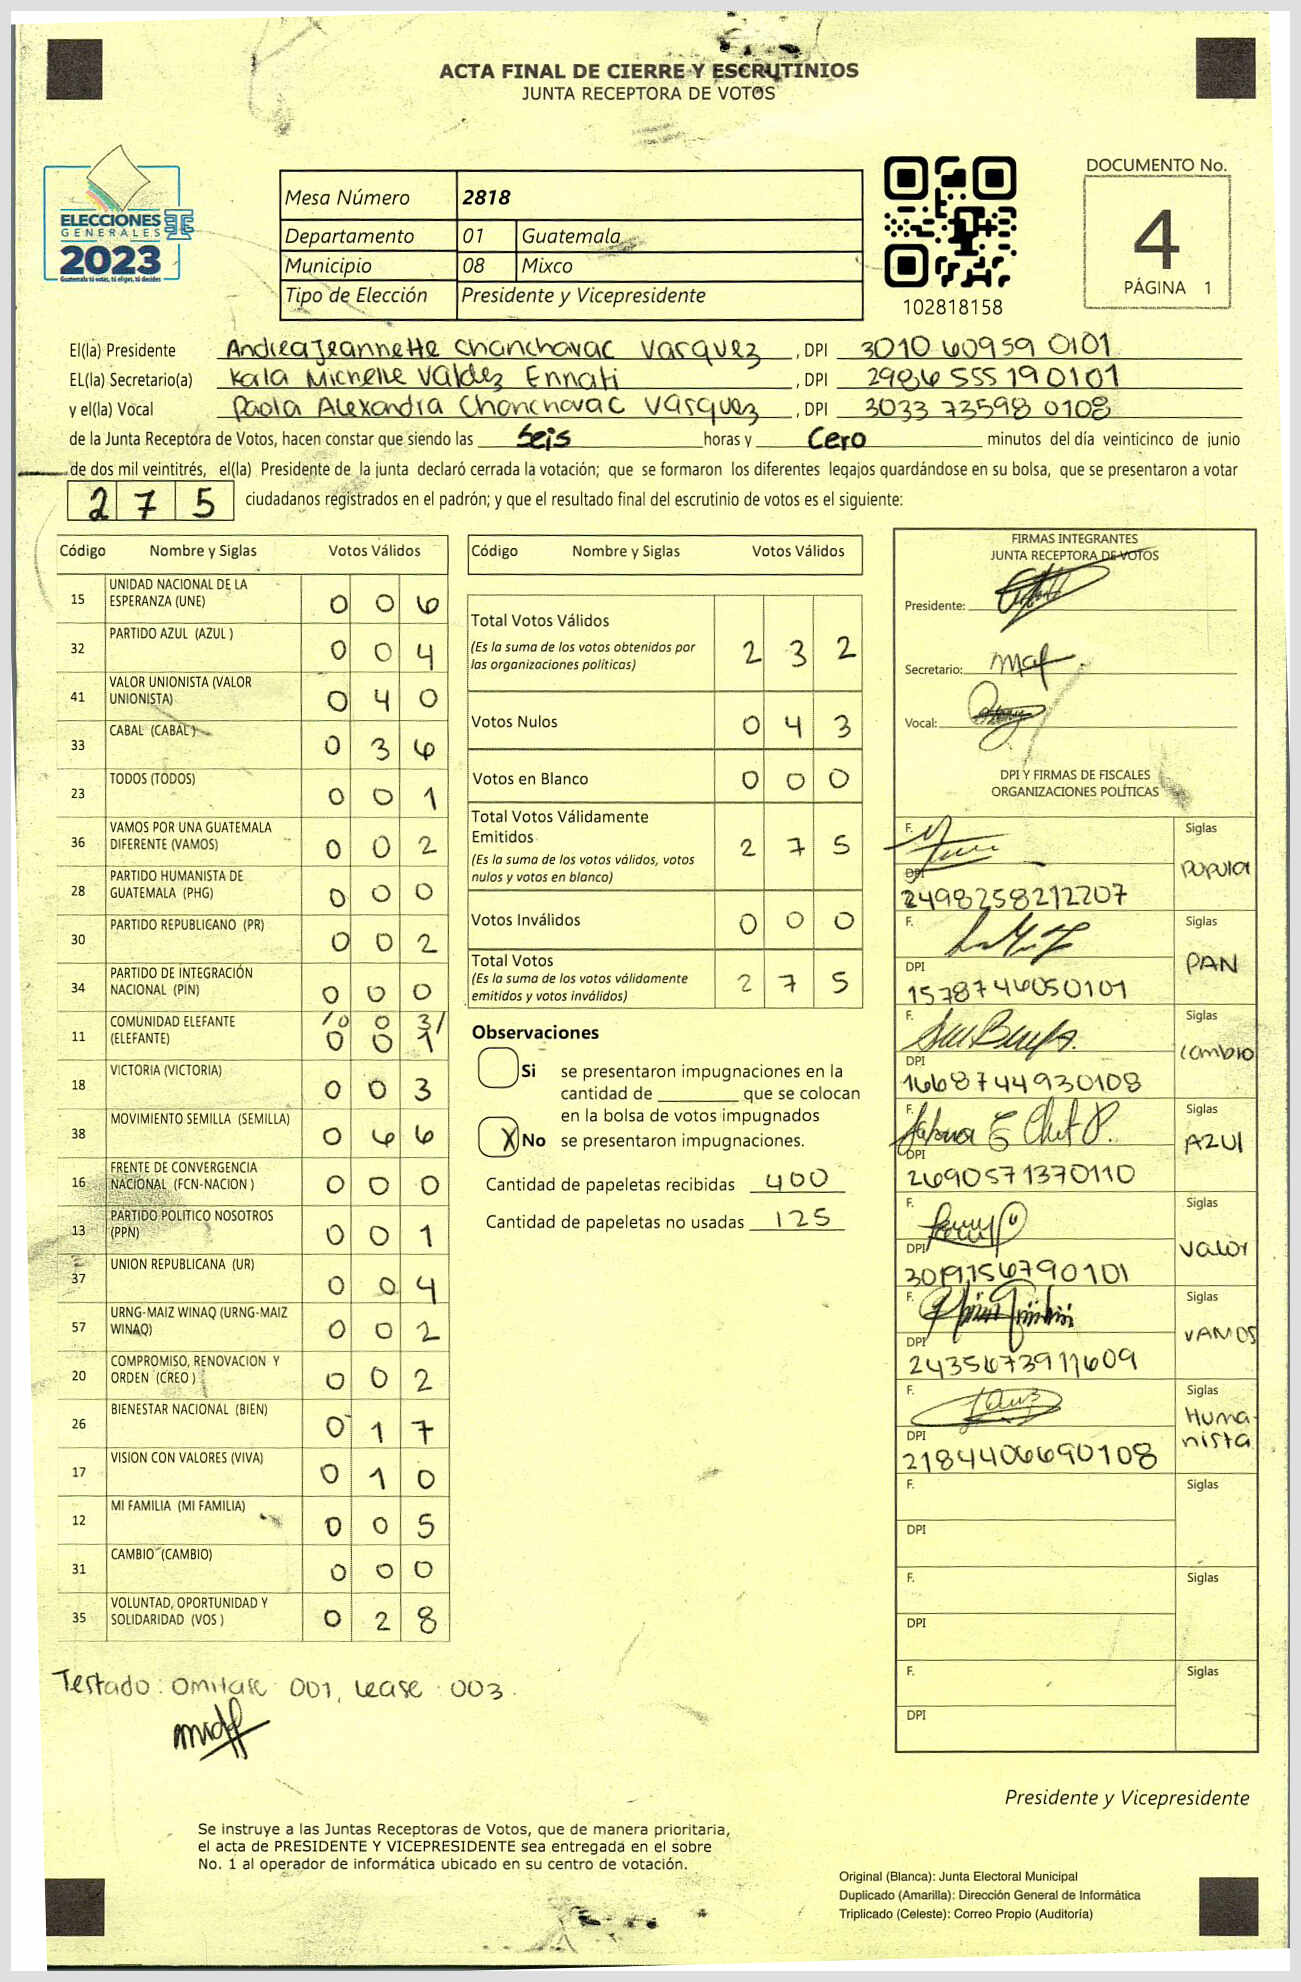 ACTA FINAL DE CIERRE Y ESCRUTINIOS
JUNTA RECEPTORA DE VOTOS
ELECCIONES
GENERALES
2023
Guatemala tú votas, tú eliges, tú decides
Mesa Número 2818
Departamento 01 Guatemala
Municipio 08 Mixco
Tipo de Elección Presidente y Vicepresidente
102818158
DOCUMENTO No.
4
PÁGINA 1
El(la) Presidente Andrea Jeannette Chanchavac Vasquez, DPI 3010 60959 0101
EL(la) Secretario(a) Karla Michelle Valdez Ennati, DPI 2986 55519 0101
y el(la) Vocal Paola Alexandra Chanchavac Vásquez, DPI 3033 73598 0108
de la Junta Receptora de Votos, hacen constar que siendo las Seis horas y Cero minutos del día veinticinco de junio
de dos mil veintitrés, el(la) Presidente de la junta declaró cerrada la votación; que se formaron los diferentes legajos guardándose en su bolsa, que se presentaron a votar
275 ciudadanos registrados en el padrón; y que el resultado final del escrutinio de votos es el siguiente:
Código Nombre y Siglas Votos Válidos
15 UNIDAD NACIONAL DE LA ESPERANZA (UNE) 0 0 6
32 PARTIDO AZUL (AZUL ) 0 0 4
41 VALOR UNIONISTA (VALOR UNIONISTA) 0 4 0
33 CABAL (CABAL ) 0 3 6
23 TODOS (TODOS) 0 0 1
36 VAMOS POR UNA GUATEMALA DIFERENTE (VAMOS) 0 0 2
28 PARTIDO HUMANISTA DE GUATEMALA (PHG) 0 0 0
30 PARTIDO REPUBLICANO (PR) 0 0 2
34 PARTIDO DE INTEGRACIÓN NACIONAL (PIN) 0 0 0
11 COMUNIDAD ELEFANTE (ELEFANTE) /0 0 3/ 0 0 1
18 VICTORIA (VICTORIA) 0 0 3
38 MOVIMIENTO SEMILLA (SEMILLA) 0 6 6
16 FRENTE DE CONVERGENCIA NACIONAL (FCN-NACION ) 0 0 0
13 PARTIDO POLITICO NOSOTROS (PPN) 0 0 1
37 UNION REPUBLICANA (UR) 0 0 4
57 URNG-MAIZ WINAQ (URNG-MAIZ WINAQ) 0 0 2
20 COMPROMISO, RENOVACION Y ORDEN (CREO ) 0 0 2
26 BIENESTAR NACIONAL (BIEN) 0 1 7
17 VISION CON VALORES (VIVA) 0 1 0
12 MI FAMILIA (MI FAMILIA) 0 0 5
31 CAMBIO (CAMBIO) 0 0 0
35 VOLUNTAD, OPORTUNIDAD Y SOLIDARIDAD (VOS ) 0 2 8
Testado: Omitase 001, lease 003.
Código Nombre y Siglas Votos Válidos
Total Votos Válidos 2 3 2
(Es la suma de los votos obtenidos por
las organizaciones políticas)
Votos Nulos 0 4 3
Votos en Blanco 0 0 0
Total Votos Válidamente
Emitidos 2 7 5
(Es la suma de los votos válidos, votos
nulos y votos en blanco)
Votos Inválidos 0 0 0
Total Votos 2 7 5
(Es la suma de los votos válidamente
emitidos y votos inválidos)
Observaciones
Si se presentaron impugnaciones en la
cantidad de ________ que se colocan
en la bolsa de votos impugnados
X No se presentaron impugnaciones.
Cantidad de papeletas recibidas 400
Cantidad de papeletas no usadas 125
FIRMAS INTEGRANTES
JUNTA RECEPTORA DE VOTOS
Presidente:
Secretario:
Vocal:
DPI Y FIRMAS DE FISCALES
ORGANIZACIONES POLÍTICAS
F. Siglas
DPI
2498258212207
F. Siglas
DPI PAN
1578746050101
F. Siglas
DPI cambio
1668744930108
F. Siglas
DPI AZUl
2690571370110
F. Siglas
DPI valor
3019156790101
F. Siglas
DPI VAMOS
2435673911609
F. Siglas
DPI Huma-
nista
2184406690108
F. Siglas
DPI
F. Siglas
DPI
F. Siglas
DPI
Presidente y Vicepresidente
Se instruye a las Juntas Receptoras de Votos, que de manera prioritaria,
el acta de PRESIDENTE Y VICEPRESIDENTE sea entregada en el sobre
No. 1 al operador de informática ubicado en su centro de votación.
Original (Blanca): Junta Electoral Municipal
Duplicado (Amarilla): Dirección General de Informática
Triplicado (Celeste): Correo Propio (Auditoría)